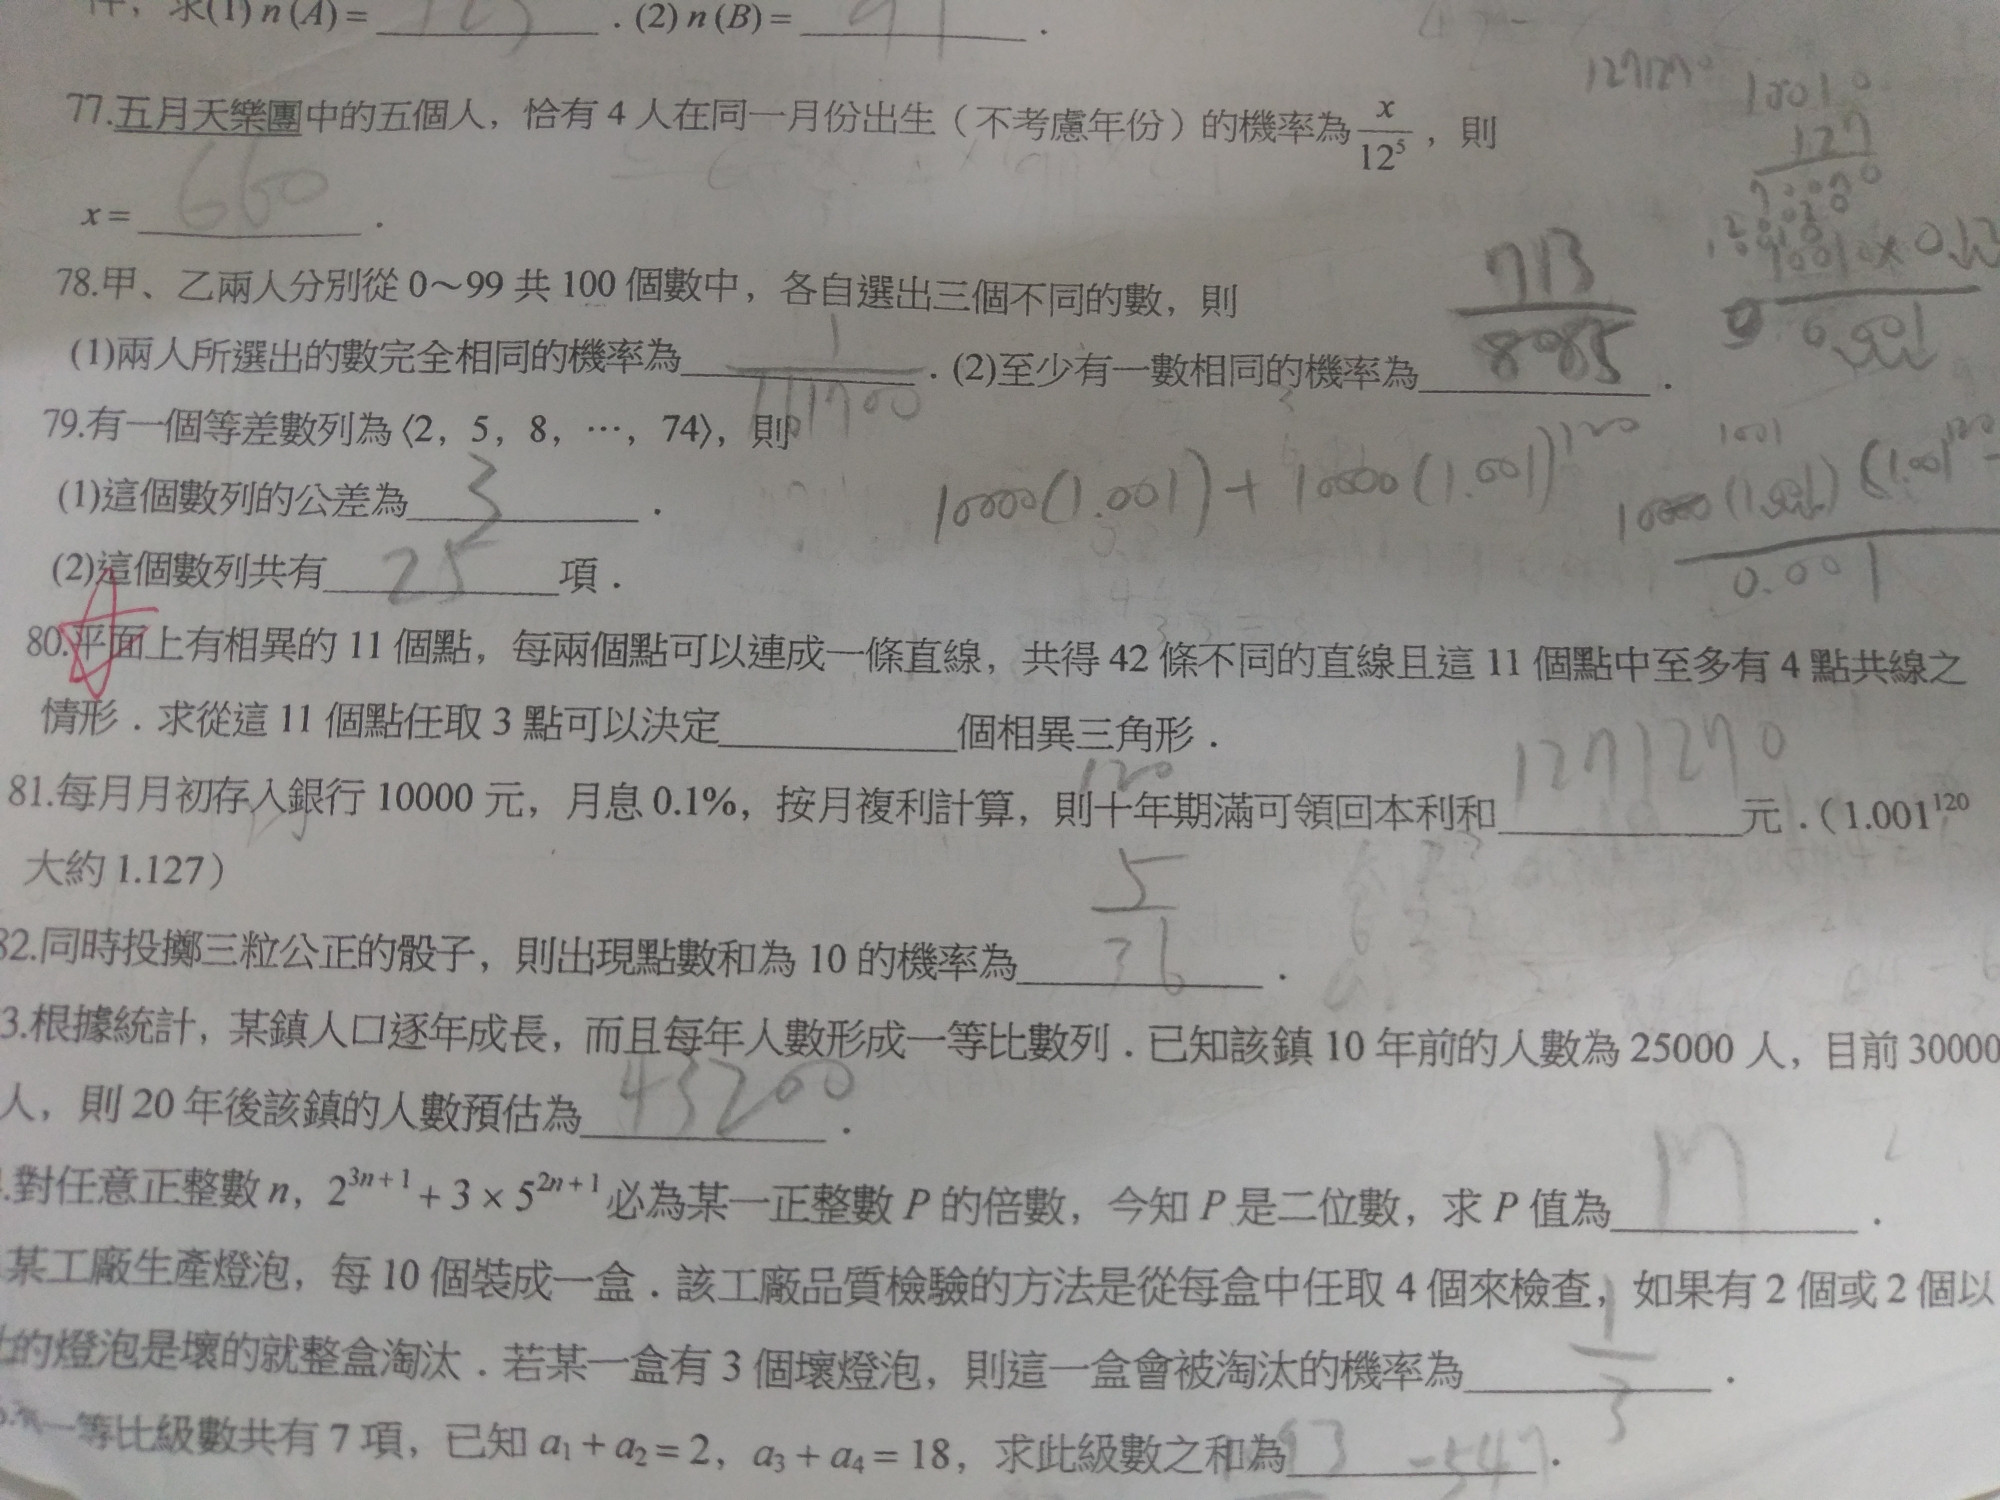 件，求(1) n (A) = 127 . (2) n (B) = 91 .
1271270
10010
127
77.五月天樂團中的五個人，恰有 4 人在同一月份出生（不考慮年份）的機率為 x/12⁵ ，則
x = 660 .
78.甲、乙兩人分別從 0～99 共 100 個數中，各自選出三個不同的數，則
(1)兩人所選出的數完全相同的機率為 1/161700 . (2)至少有一數相同的機率為 713/8085 .
79.有一個等差數列為⟨2，5，8，…，74⟩，則
(1)這個數列的公差為 3 .
10000(1.001) + 10000(1.001)¹²⁰
0.001
(2)這個數列共有 25 項．
80.平面上有相異的 11 個點，每兩個點可以連成一條直線，共得 42 條不同的直線且這 11 個點中至多有 4 點共線之
情形．求從這 11 個點任取 3 點可以決定 個相異三角形．
120
81.每月月初存入銀行 10000 元，月息 0.1%，按月複利計算，則十年期滿可領回本利和 1271270 元．（1.001¹²⁰
大約 1.127）
82.同時投擲三粒公正的骰子，則出現點數和為 10 的機率為 5/36 .
3.根據統計，某鎮人口逐年成長，而且每年人數形成一等比數列．已知該鎮 10 年前的人數為 25000 人，目前 30000
人，則 20 年後該鎮的人數預估為 43200 .
.對任意正整數 n，2³ⁿ⁺¹ + 3 × 5²ⁿ⁺¹ 必為某一正整數 P 的倍數，今知 P 是二位數，求 P 值為 17 .
某工廠生產燈泡，每 10 個裝成一盒．該工廠品質檢驗的方法是從每盒中任取 4 個來檢查，如果有 2 個或 2 個以
上的燈泡是壞的就整盒淘汰．若某一盒有 3 個壞燈泡，則這一盒會被淘汰的機率為 1/3 .
一等比級數共有 7 項，已知 a₁ + a₂ = 2，a₃ + a₄ = 18，求此級數之和為 -547 .